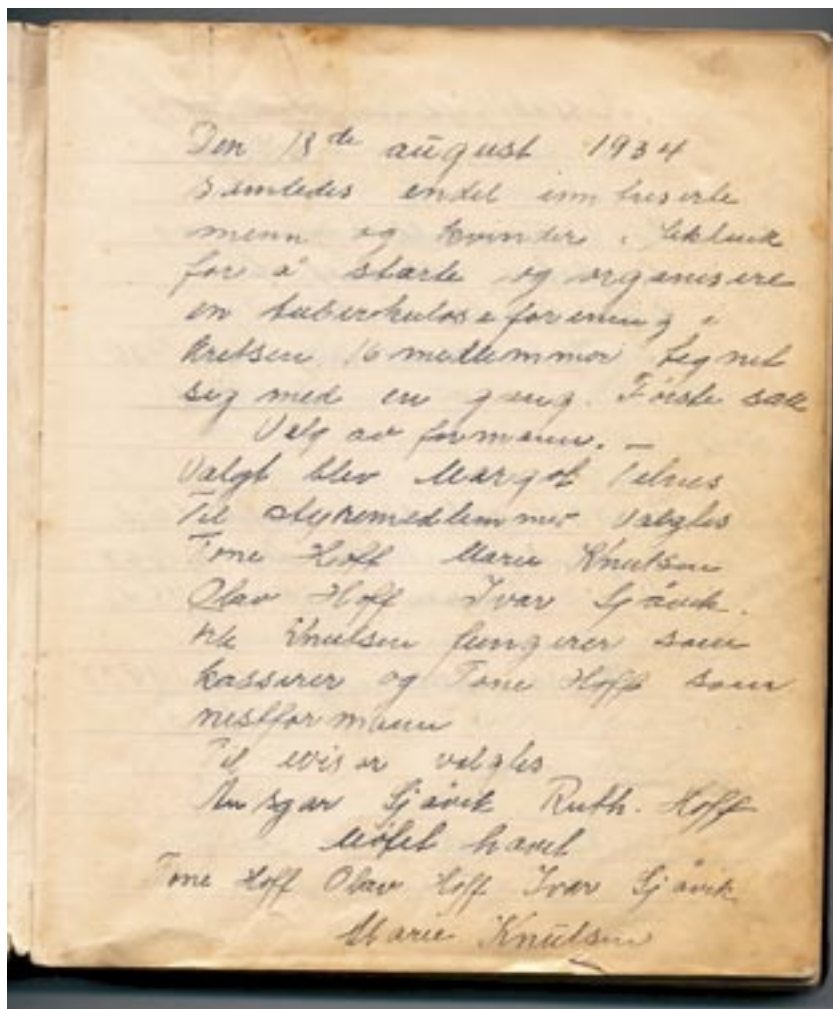 Den 18de august 1934
samledes endel inntreserte
menn og kvinder i
for å starte og organisere
en tuberkuloseforening i
kretsen. 16 medlemmer tegnet
seg med en gang. Første sak
Valg av formann. —
Valgt blev Margot Telnes
Til styremedlemmer valgtes
Tone Hoff Marie Knutsen
Olav Hoff Ivar Gjåvik.
Knutsen fungerer som
kasserer og Tone Hoff som
nestformann
Til valgtes
Ansgar Gjåvik Ruth. Hoff
Møtet hævet
Tone Hoff Olav Hoff Ivar Gjåvik
Marie Knutsen